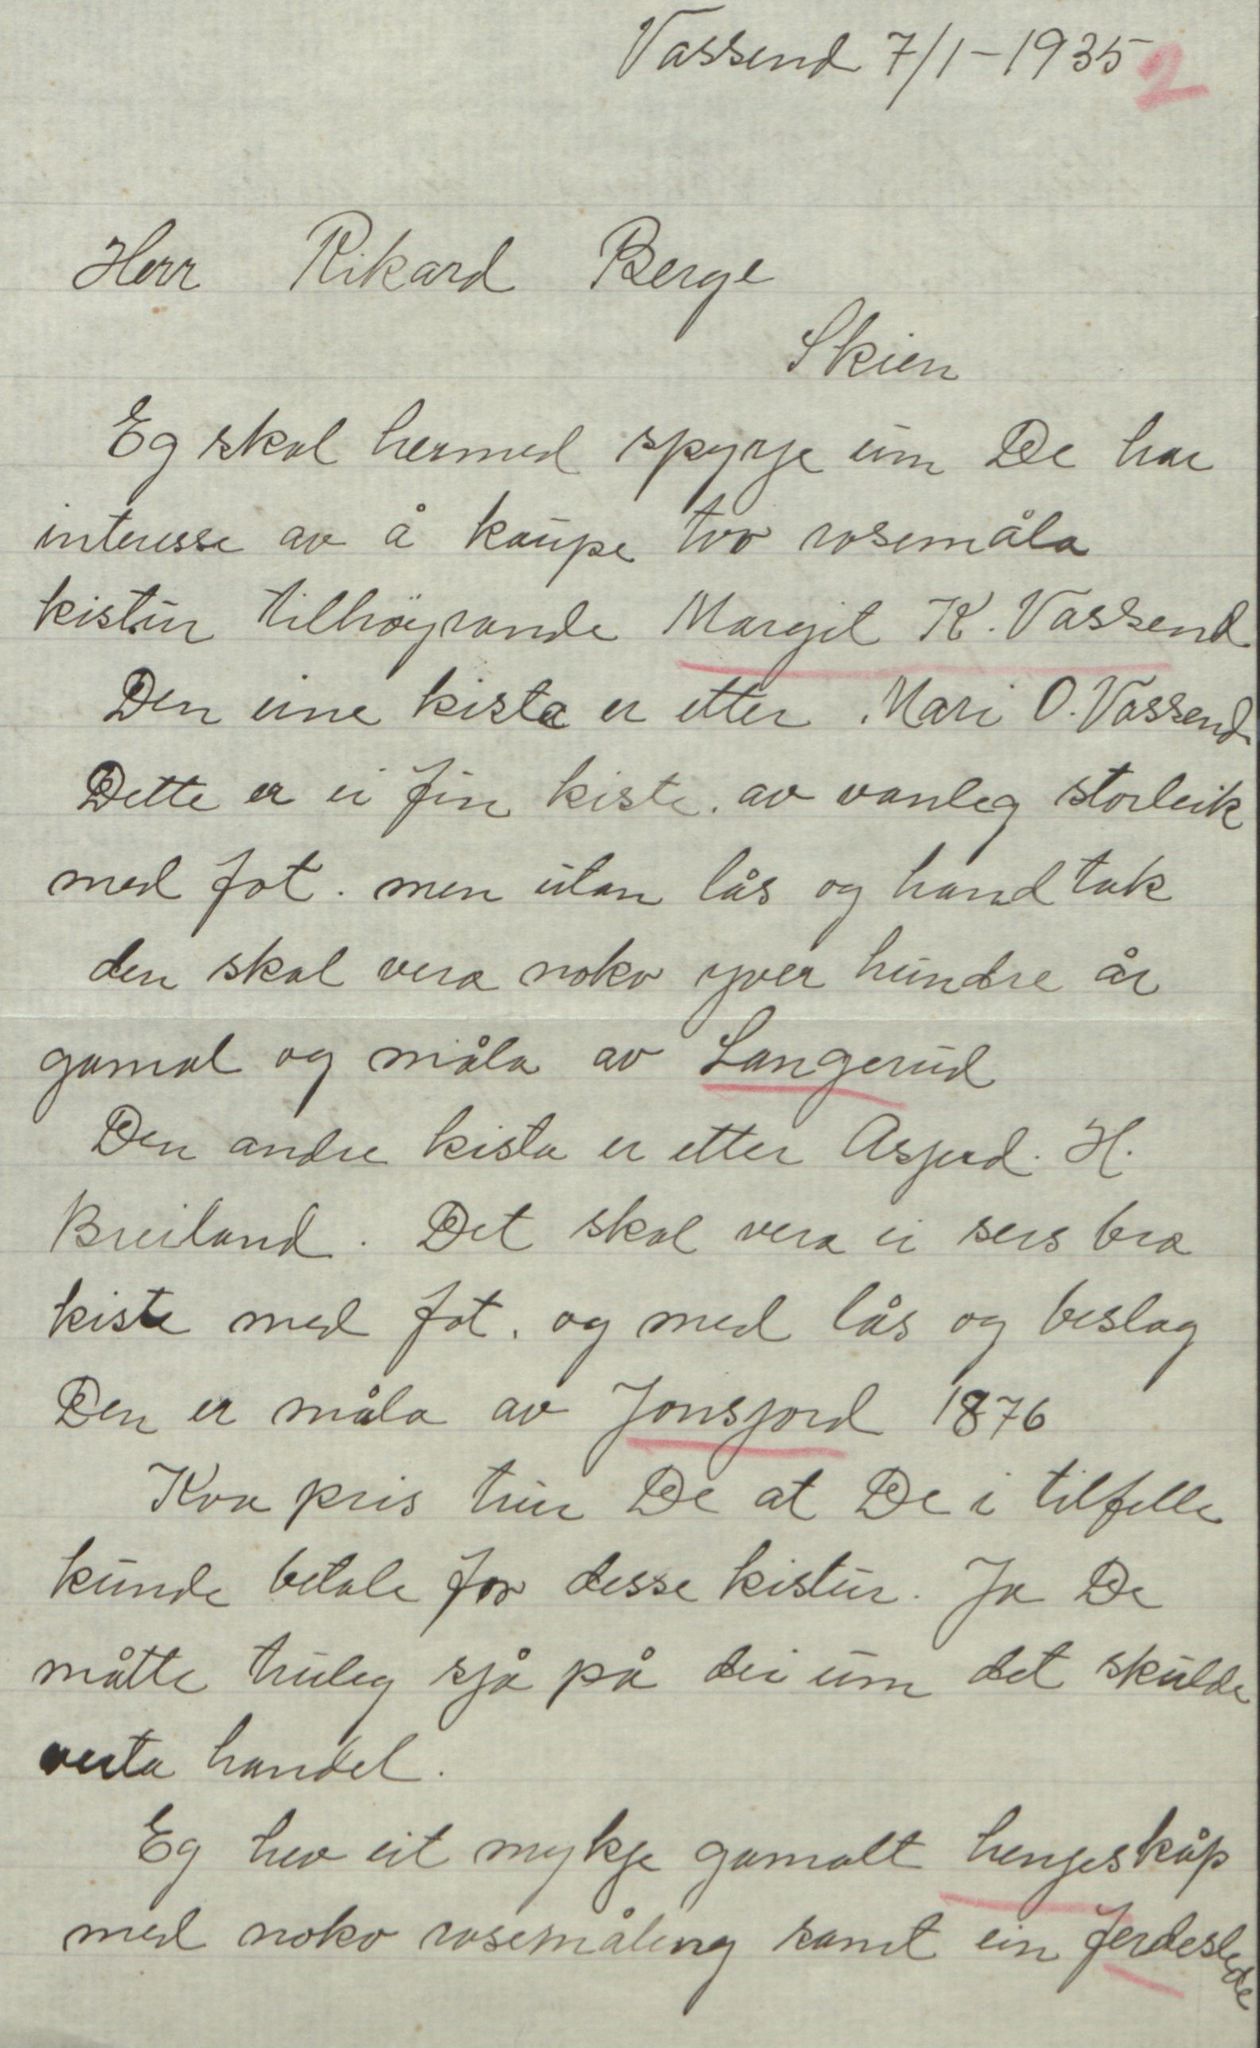 Vassend 7/1-1935 2
Herr Rikard Berge
Skien
Eg skal hermed spyrje um De har
interesse av å kaupe tvo rosemåla
kistur tilhøyrande Margit K. Vassend
Den eine kista er etter Mari O. Vassend.
Dette er ei fin kiste. av vanleg storleik
med fot. men utan lås og handtak
den skal vera noko yver hundre år
gamal og måla av Langerud
Den andre kista er etter Asjerd. H.
Breiland. Det skal vera ei sers bra
kiste med fot. og med lås og beslag
Den er måla av Jonsjord 1876
Kva pris trur De at De i tilfelle
kunde betale for desse kistur. Ja De
måtte truleg sjå på dei um det skulde
verta handel.
Eg hev eit mykje gamalt hengeskåp
med noko rosemåling samt ein ferdeslede